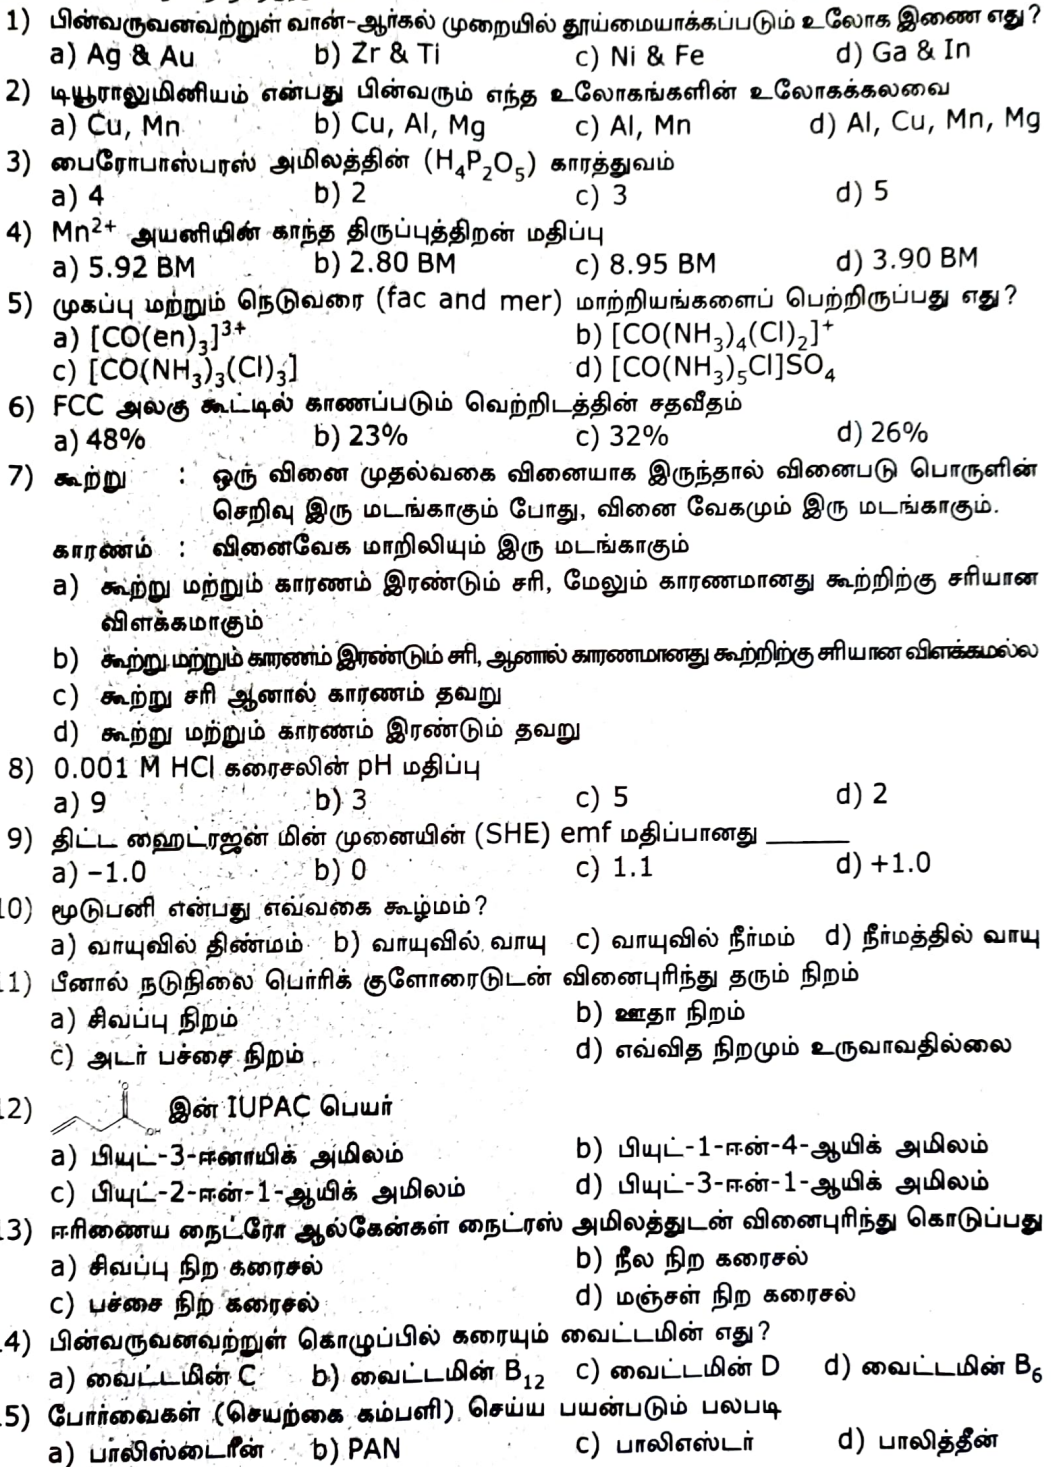 1) பின்வருவனவற்றுள் வான்-ஆர்கல் முறையில் தூய்மையாக்கப்படும் உலோக இணை எது?
a) Ag & Au b) Zr & Ti c) Ni & Fe d) Ga & In
2) டியூராலுமினியம் என்பது பின்வரும் எந்த உலோகங்களின் உலோகக்கலவை
a) Cu, Mn b) Cu, Al, Mg c) Al, Mn d) Al, Cu, Mn, Mg
3) பைரோபாஸ்பரஸ் அமிலத்தின் (H₄P₂O₅) காரத்துவம்
a) 4 b) 2 c) 3 d) 5
4) Mn²⁺ அயனியின் காந்த திருப்புத்திறன் மதிப்பு
a) 5.92 BM b) 2.80 BM c) 8.95 BM d) 3.90 BM
5) முகப்பு மற்றும் நெடுவரை (fac and mer) மாற்றியங்களைப் பெற்றிருப்பது எது?
a) [CO(en)₃]³⁺ b) [CO(NH₃)₄(Cl)₂]⁺
c) [CO(NH₃)₃(Cl)₃] d) [CO(NH₃)₅Cl]SO₄
6) FCC அலகு கூட்டில் காணப்படும் வெற்றிடத்தின் சதவீதம்
a) 48% b) 23% c) 32% d) 26%
7) கூற்று : ஒரு வினை முதல்வகை வினையாக இருந்தால் வினைபடு பொருளின்
செறிவு இரு மடங்காகும் போது, வினை வேகமும் இரு மடங்காகும்.
காரணம் : வினைவேக மாறிலியும் இரு மடங்காகும்
a) கூற்று மற்றும் காரணம் இரண்டும் சரி, மேலும் காரணமானது கூற்றிற்கு சரியான
விளக்கமாகும்
b) கூற்று மற்றும் காரணம் இரண்டும் சரி, ஆனால் காரணமானது கூற்றிற்கு சரியான விளக்கமல்ல
c) கூற்று சரி ஆனால் காரணம் தவறு
d) கூற்று மற்றும் காரணம் இரண்டும் தவறு
8) 0.001 M HCl கரைசலின் pH மதிப்பு
a) 9 b) 3 c) 5 d) 2
9) திட்ட ஹைட்ரஜன் மின் முனையின் (SHE) emf மதிப்பானது ______
a) −1.0 b) 0 c) 1.1 d) +1.0
10) மூடுபனி என்பது எவ்வகை கூழ்மம்?
a) வாயுவில் திண்மம் b) வாயுவில் வாயு c) வாயுவில் நீர்மம் d) நீர்மத்தில் வாயு
11) பீனால் நடுநிலை பெர்ரிக் குளோரைடுடன் வினைபுரிந்து தரும் நிறம்
a) சிவப்பு நிறம் b) ஊதா நிறம்
c) அடர் பச்சை நிறம் d) எவ்வித நிறமும் உருவாவதில்லை
12) O OH இன் IUPAC பெயர்
a) பியுட்-3-ஈனாயிக் அமிலம் b) பியுட்-1-ஈன்-4-ஆயிக் அமிலம்
c) பியுட்-2-ஈன்-1-ஆயிக் அமிலம் d) பியுட்-3-ஈன்-1-ஆயிக் அமிலம்
13) ஈரிணைய நைட்ரோ ஆல்கேன்கள் நைட்ரஸ் அமிலத்துடன் வினைபுரிந்து கொடுப்பது
a) சிவப்பு நிற கரைசல் b) நீல நிற கரைசல்
c) பச்சை நிற கரைசல் d) மஞ்சள் நிற கரைசல்
14) பின்வருவனவற்றுள் கொழுப்பில் கரையும் வைட்டமின் எது?
a) வைட்டமின் C b) வைட்டமின் B₁₂ c) வைட்டமின் D d) வைட்டமின் B₆
15) போர்வைகள் (செயற்கை கம்பளி) செய்ய பயன்படும் பலபடி
a) பாலிஸ்டைரீன் b) PAN c) பாலிஎஸ்டர் d) பாலித்தீன்